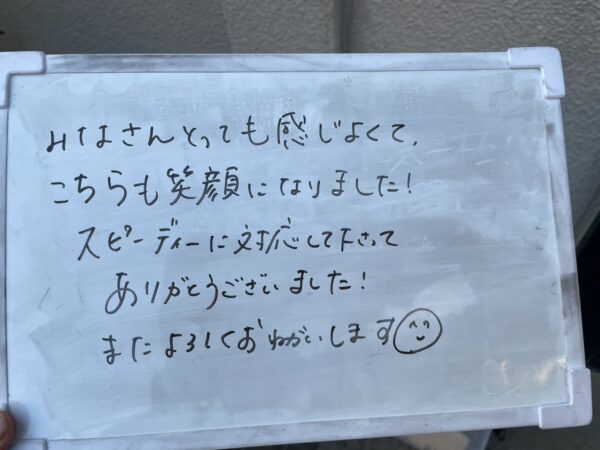 みなさんとっても感じよくて、
こちらも笑顔になりました!
スピーディーに対応して下さって
ありがとうございました!
またよろしくおねがいします